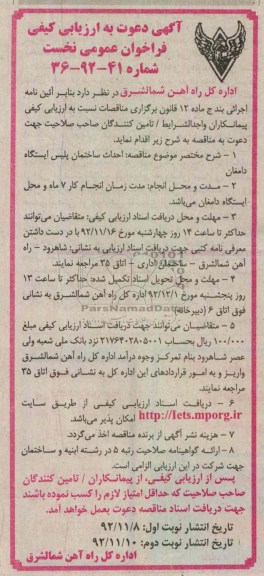 آگهی دعوت به ارزیابی کیفی
فراخوان عمومی نخست
شماره ۴۱-۹۲-۳۶
اداره کل راه آهن شمالشرق در نظر دارد بنابر آئین نامه
اجرائی بند ج ماده ۱۲ قانون برگزاری مناقصات نسبت به ارزیابی کیفی
پیمانکاران واجدالشرایط / تامین کنندگان صاحب صلاحیت جهت
دعوت به مناقصه به شرح زیر اقدام نماید.
۱ - شرح مختصر موضوع مناقصه: احداث ساختمان پلیس ایستگاه
دامغان
۲ - مدت و محل انجام: مدت زمان انجام کار ۷ ماه و محل
ایستگاه دامغان می‌باشد.
۳ - مهلت و محل دریافت اسناد ارزیابی کیفی: متقاضیان می‌توانند
حداکثر تا ساعت ۱۴ روز چهارشنبه مورخ ۹۲/۱۱/۱۶ با در دست داشتن
معرفی نامه کتبی جهت دریافت اسناد ارزیابی به نشانی: شاهرود - راه
آهن شمالشرق - ساختمان اداری - اتاق ۳۵ مراجعه نمایند.
۴ - مهلت و محل تحویل اسناد تکمیل شده: حداکثر تا ساعت ۱۳
روز پنجشنبه مورخ ۹۲/۱۲/۱ اداره کل راه آهن شمالشرق به نشانی
فوق اتاق ۶ (دبیرخانه)
۵ - متقاضیان می‌توانند جهت دریافت اسناد ارزیابی کیفی مبلغ
۱۰۰/۰۰۰ ریال بحساب ۲۱۷۶۴۰۲۸۰۵۰۰۱ نزد بانک ملی شعبه ولی
عصر شاهرود بنام تمرکز وجوه درآمد اداره کل راه آهن شمالشرق
واریز و به امور قراردادهای این اداره کل به نشانی فوق اتاق ۳۵
مراجعه نمایند.
۶ - دریافت اسناد ارزیابی کیفی از طریق سایت
http://Iets.mporg.ir امکان پذیر می‌باشد.
۷ - هزینه نشر آگهی از برنده مناقصه اخذ می‌گردد.
۸ - ارائه گواهینامه صلاحیت رتبه ۵ در رشته ابنیه و ساختمان
جهت شرکت در این ارزیابی الزامی است.
پس از ارزیابی کیفی، از پیمانکاران / تامین کنندگان
صاحب صلاحیت که حداقل امتیاز لازم را کسب نموده باشند
جهت دریافت اسناد مناقصه دعوت بعمل خواهد آمد.
تاریخ انتشار نوبت اول: ۹۲/۱۱/۸
تاریخ انتشار نوبت دوم: ۹۲/۱۱/۱۰
اداره کل راه آهن شمالشرق